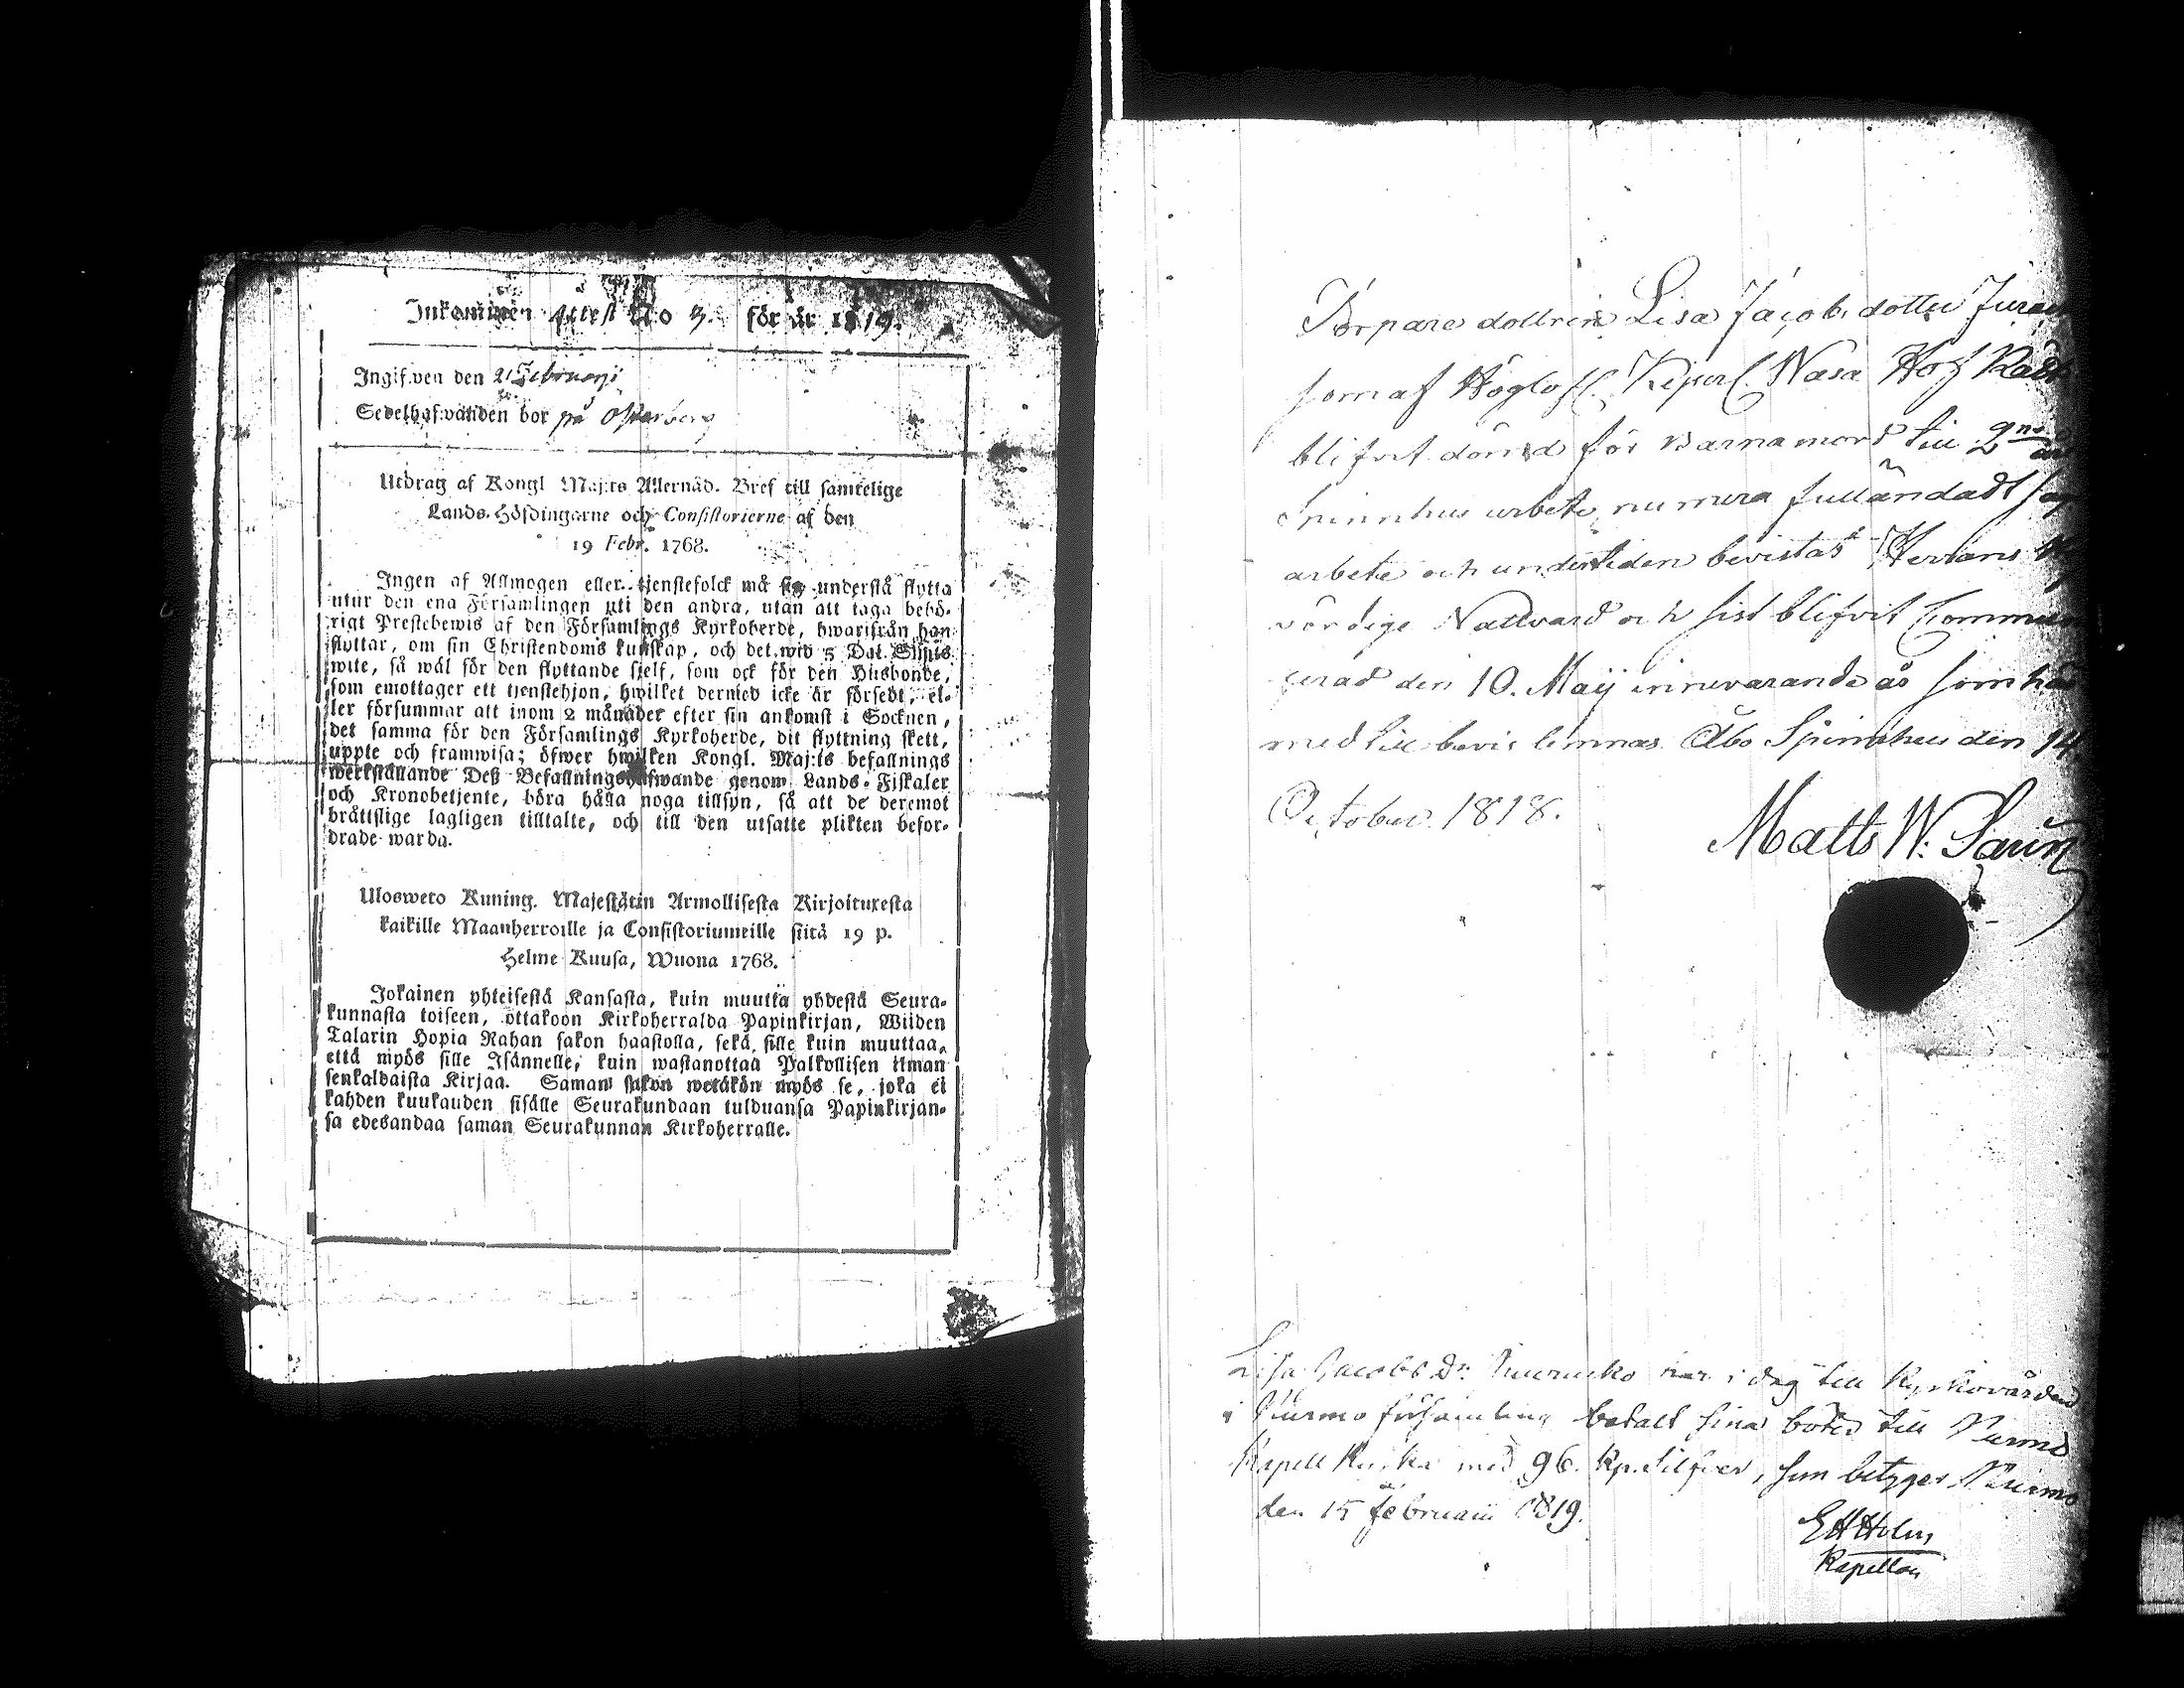 Inkommen Attest No 3. för år 1819.
Ingifven den 21 Februarji
Sedelhafvanden bor på Österberg
Utdrag af Kongl Maj:ts Allernåd. Bref till samtelige
Lands-Höfdingarne och Consistorierne af den
19 Febr. 1768.
Ingen af Allmogen eller tjenstefolck må sig understå flytta
utur den ena Församlingen uti den andra, utan att taga behö-
rigt Prestebewis af den Församlings Kyrkoherde, hwarifrån han
flyttar, om sin Christendoms kunskap, och det wid 5 Dal. S:mts
wite, så wäl för den flyttande sjelf, som ock för den Husbonde,
som emottager ett tjenstehjon, hwilket dermed icke är försedt, el-
ler försummar att inom 2 månader efter sin ankomst i Socknen,
det samma för den Församlings Kyrkoherde, dit flyttning skett,
uppte och framwisa; öfwer hwilken Kongl. Maj:ts befallnings
werkställande Deß Befallningshafwande genom Lands-Fiskaler
och Kronobetjente, böra hålla noga tillsyn, så att de deremot
bråttslige lagligen tilltalte, och till den utsatte plikten befor-
drade warda.
Ulosweto Kuning. Majestätin Armollisesta Kirjoituxesta
kaikille Maanherroille ja Consistoriumeille siitä 19 p.
Helme Kuusa, Wuona 1768.
Jokainen yhteisestä Kansasta, kuin muutta yhdestä Seura-
kunnasta toiseen, ottakoon Kirkoherralda Papinkirjan, Wiiden
Talarin Hopia Rahan sakon haastolla, sekä sille kuin muuttaa,
että myös sille Isännelle, kuin wastanottaa Palkollisen ilman
senkaldaista Kirjaa. Saman sakon wetäkön myös se, joka ei
kahden kuukauden sisälle Seurakundaan tulduansa Papinkirjan-
sa edesandaa saman Seurakunnan Kirkoherralle.
Torpare dottren Lisa Jacobsdotter
som af Höglofl. Kejserl. Wasa Hof Rätt
blifvit dömd för Barnamord till 2ne
Spinnhus arbete, numera fulländadt
arbete och undertiden bevistat Herrans
värdige Nattvard och sist blifvit Commu
cerad den 10. Maij innevarande år som
med till bevis lemnas Åbo Spinnhus den 14
October 1818.
Matts W:
Lisa Jacobs Dr har i dag till Kyrkovärden
i Nurmo församling betalt sina böter till Nurmo
Kapell Kyrka med 96. kp. Silfver, som betyger Nurmo
den 15 Februarii 1819.
E H Holm
Kapellan